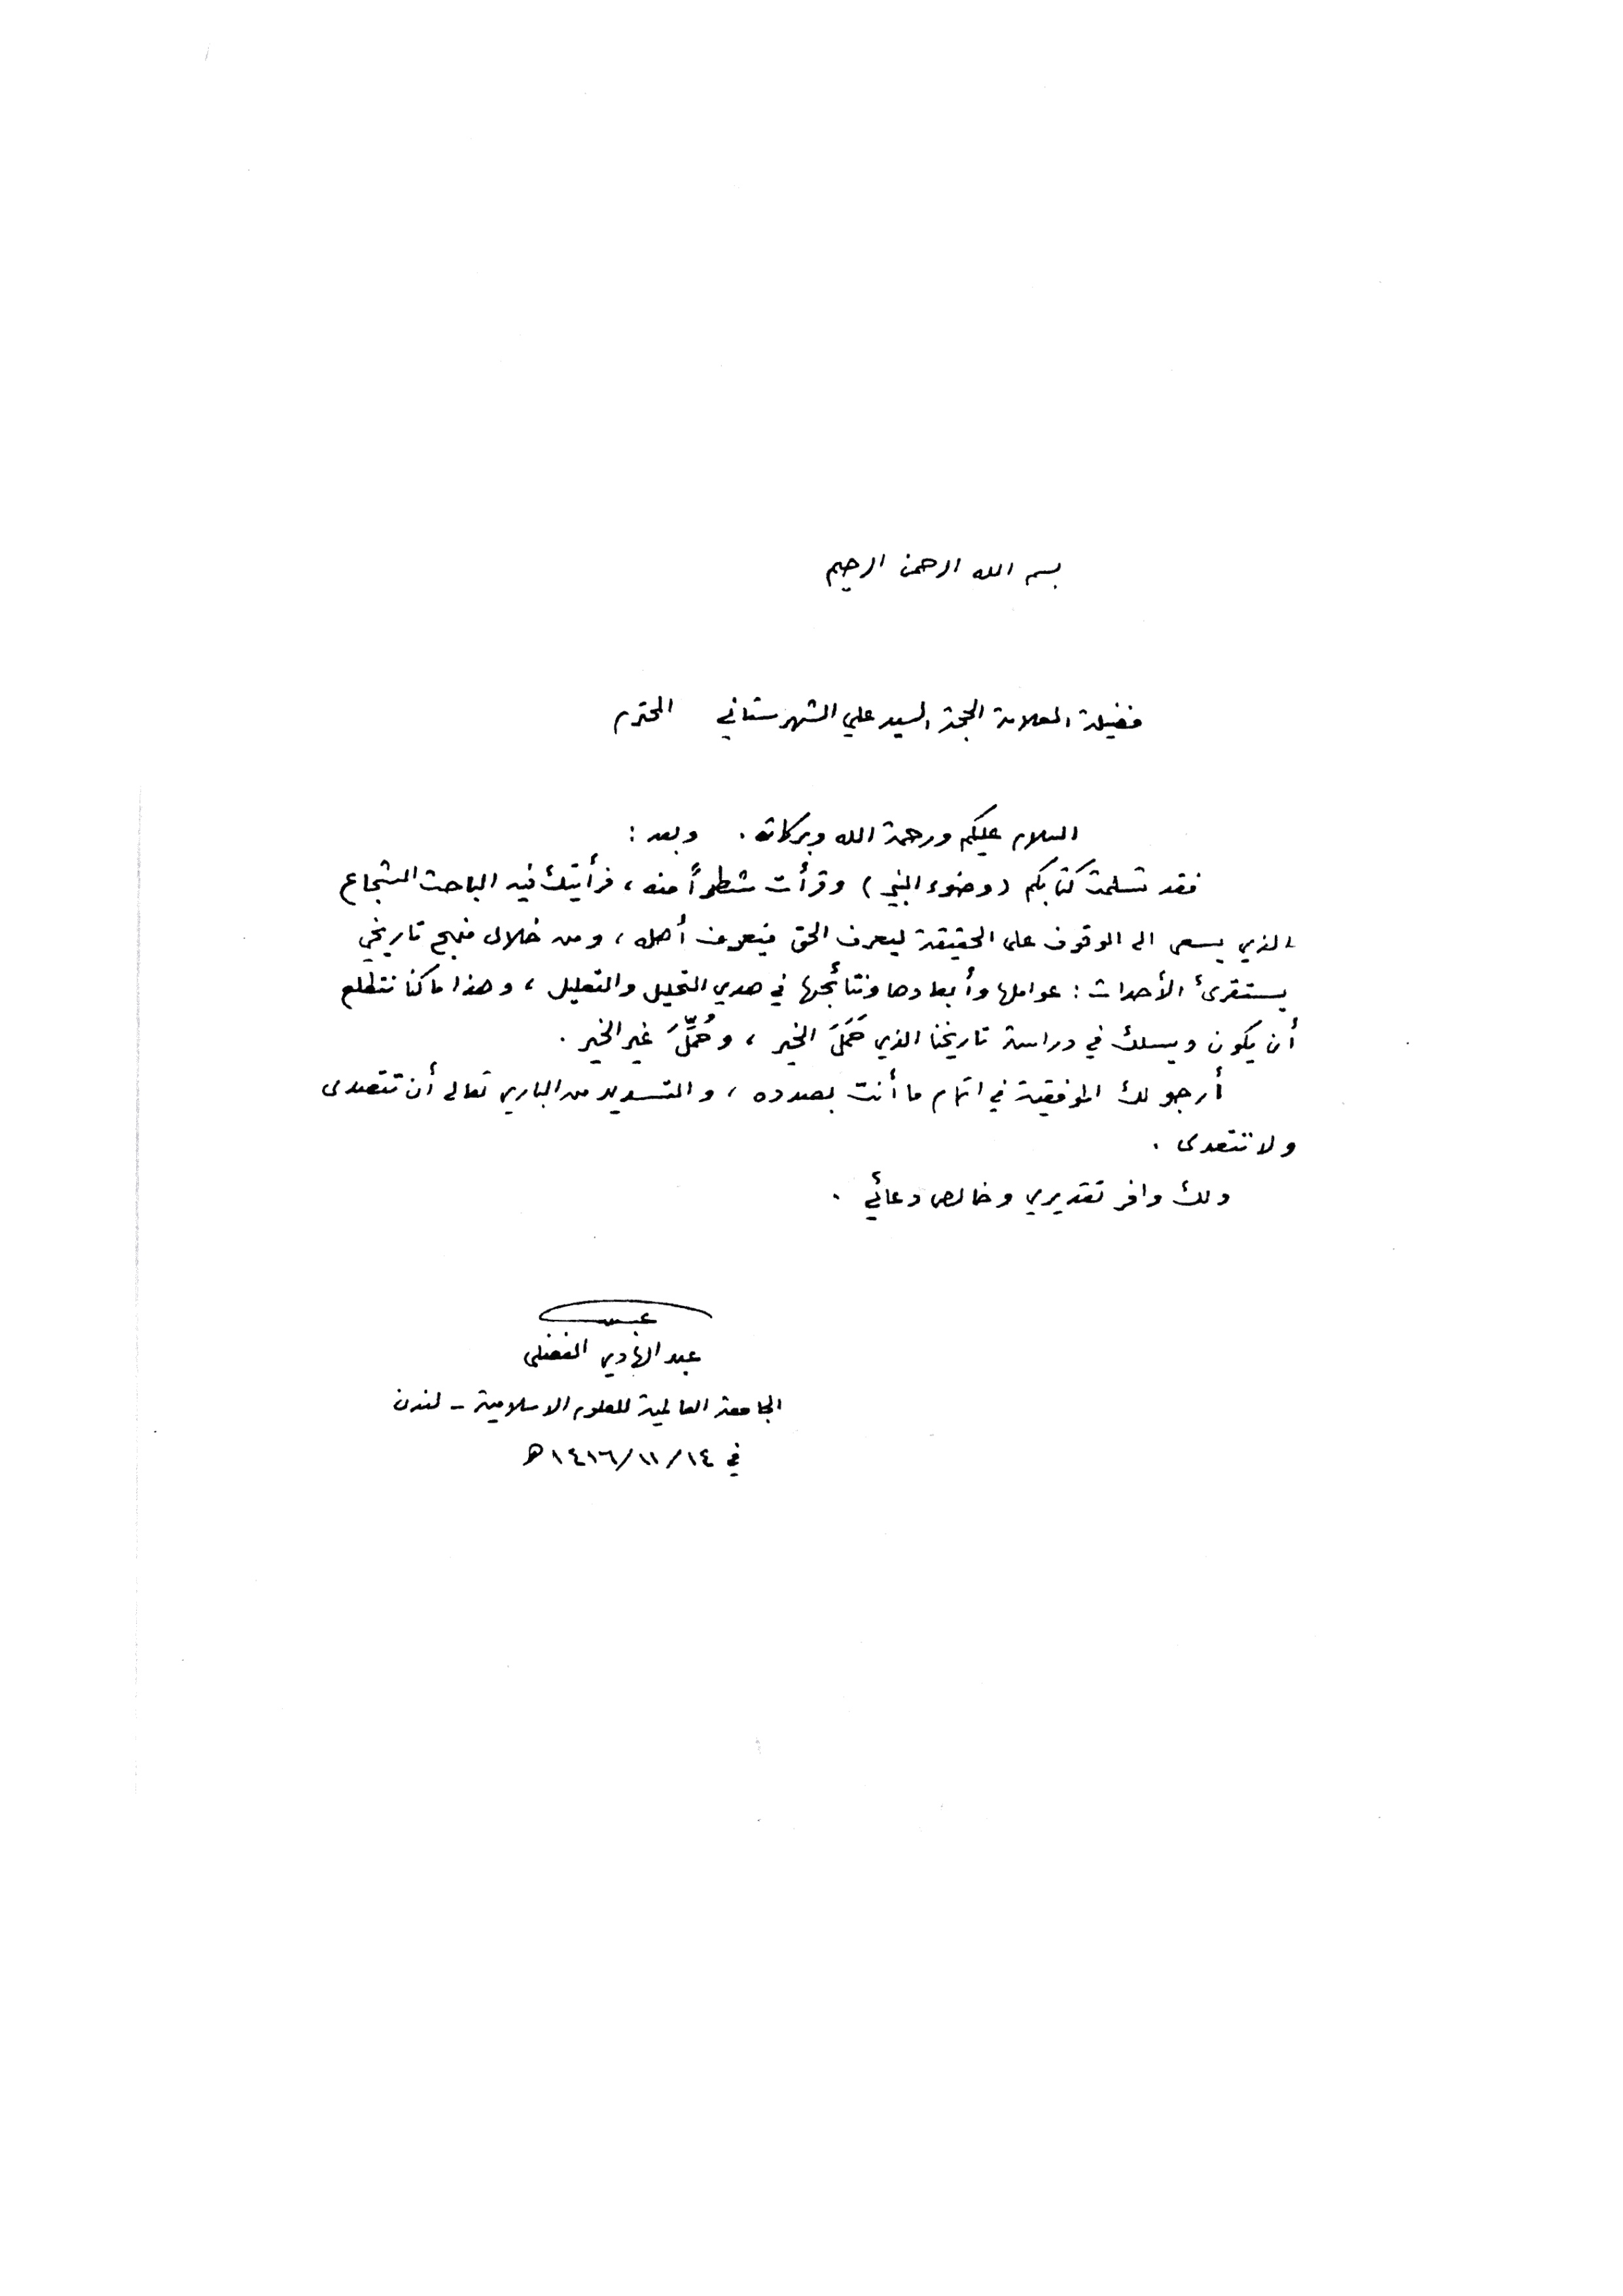 بسم الله الرحمن الرحيم
فضيلة العلامة الحجة السيد علي الشهرستاني المحترم
السلام عليكم ورحمة الله وبركاته . وبعد :
فقد تسلمت كتابكم ( وضوء النبي ) وقرأت شطراً منه ، فرأيتك فيه الباحث الشجاع
الذي يسعى الى الوقوف على الحقيقة ليعرف الحق فيعرف أهله ، ومن خلال منهج تاريخي
يستقرئ الأحداث : عواملها وأبعادها ونتائجها في هدي التحليل والتعليل ، وهذا ما كنا نتطلع
أن يكون ويسلك في دراسة تاريخنا الذي حَمَلَ الخير ، وحُمِّلَ غير الخير .
أرجو لك الموفقية في اتمام ما أنت بصدده ، والتسديد من الباري تعالى أن تتصدى
ولا تتعدى .
ولك وافر تقديري وخالص دعائي .
عبد الهادي الفضلي
الجامعة العالمية للعلوم الاسلامية - لندن
في ١٤١٦/١١/١٤ هـ